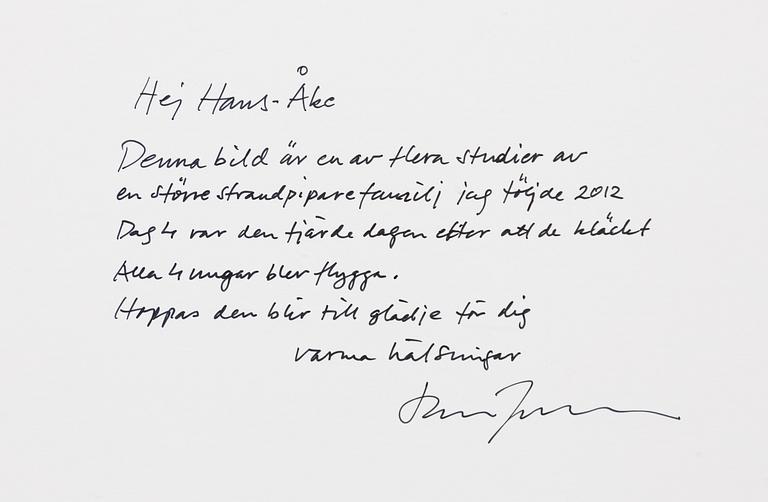 Hej Hans-Åke
Denna bild är en av flera studier av
en större strandpiparefamilj jag följde 2012
Dag 4 var den fjärde dagen efter att de kläckt
Alla 4 ungar blev flygga.
Hoppas den blir till glädje för dig
varma hälsningar